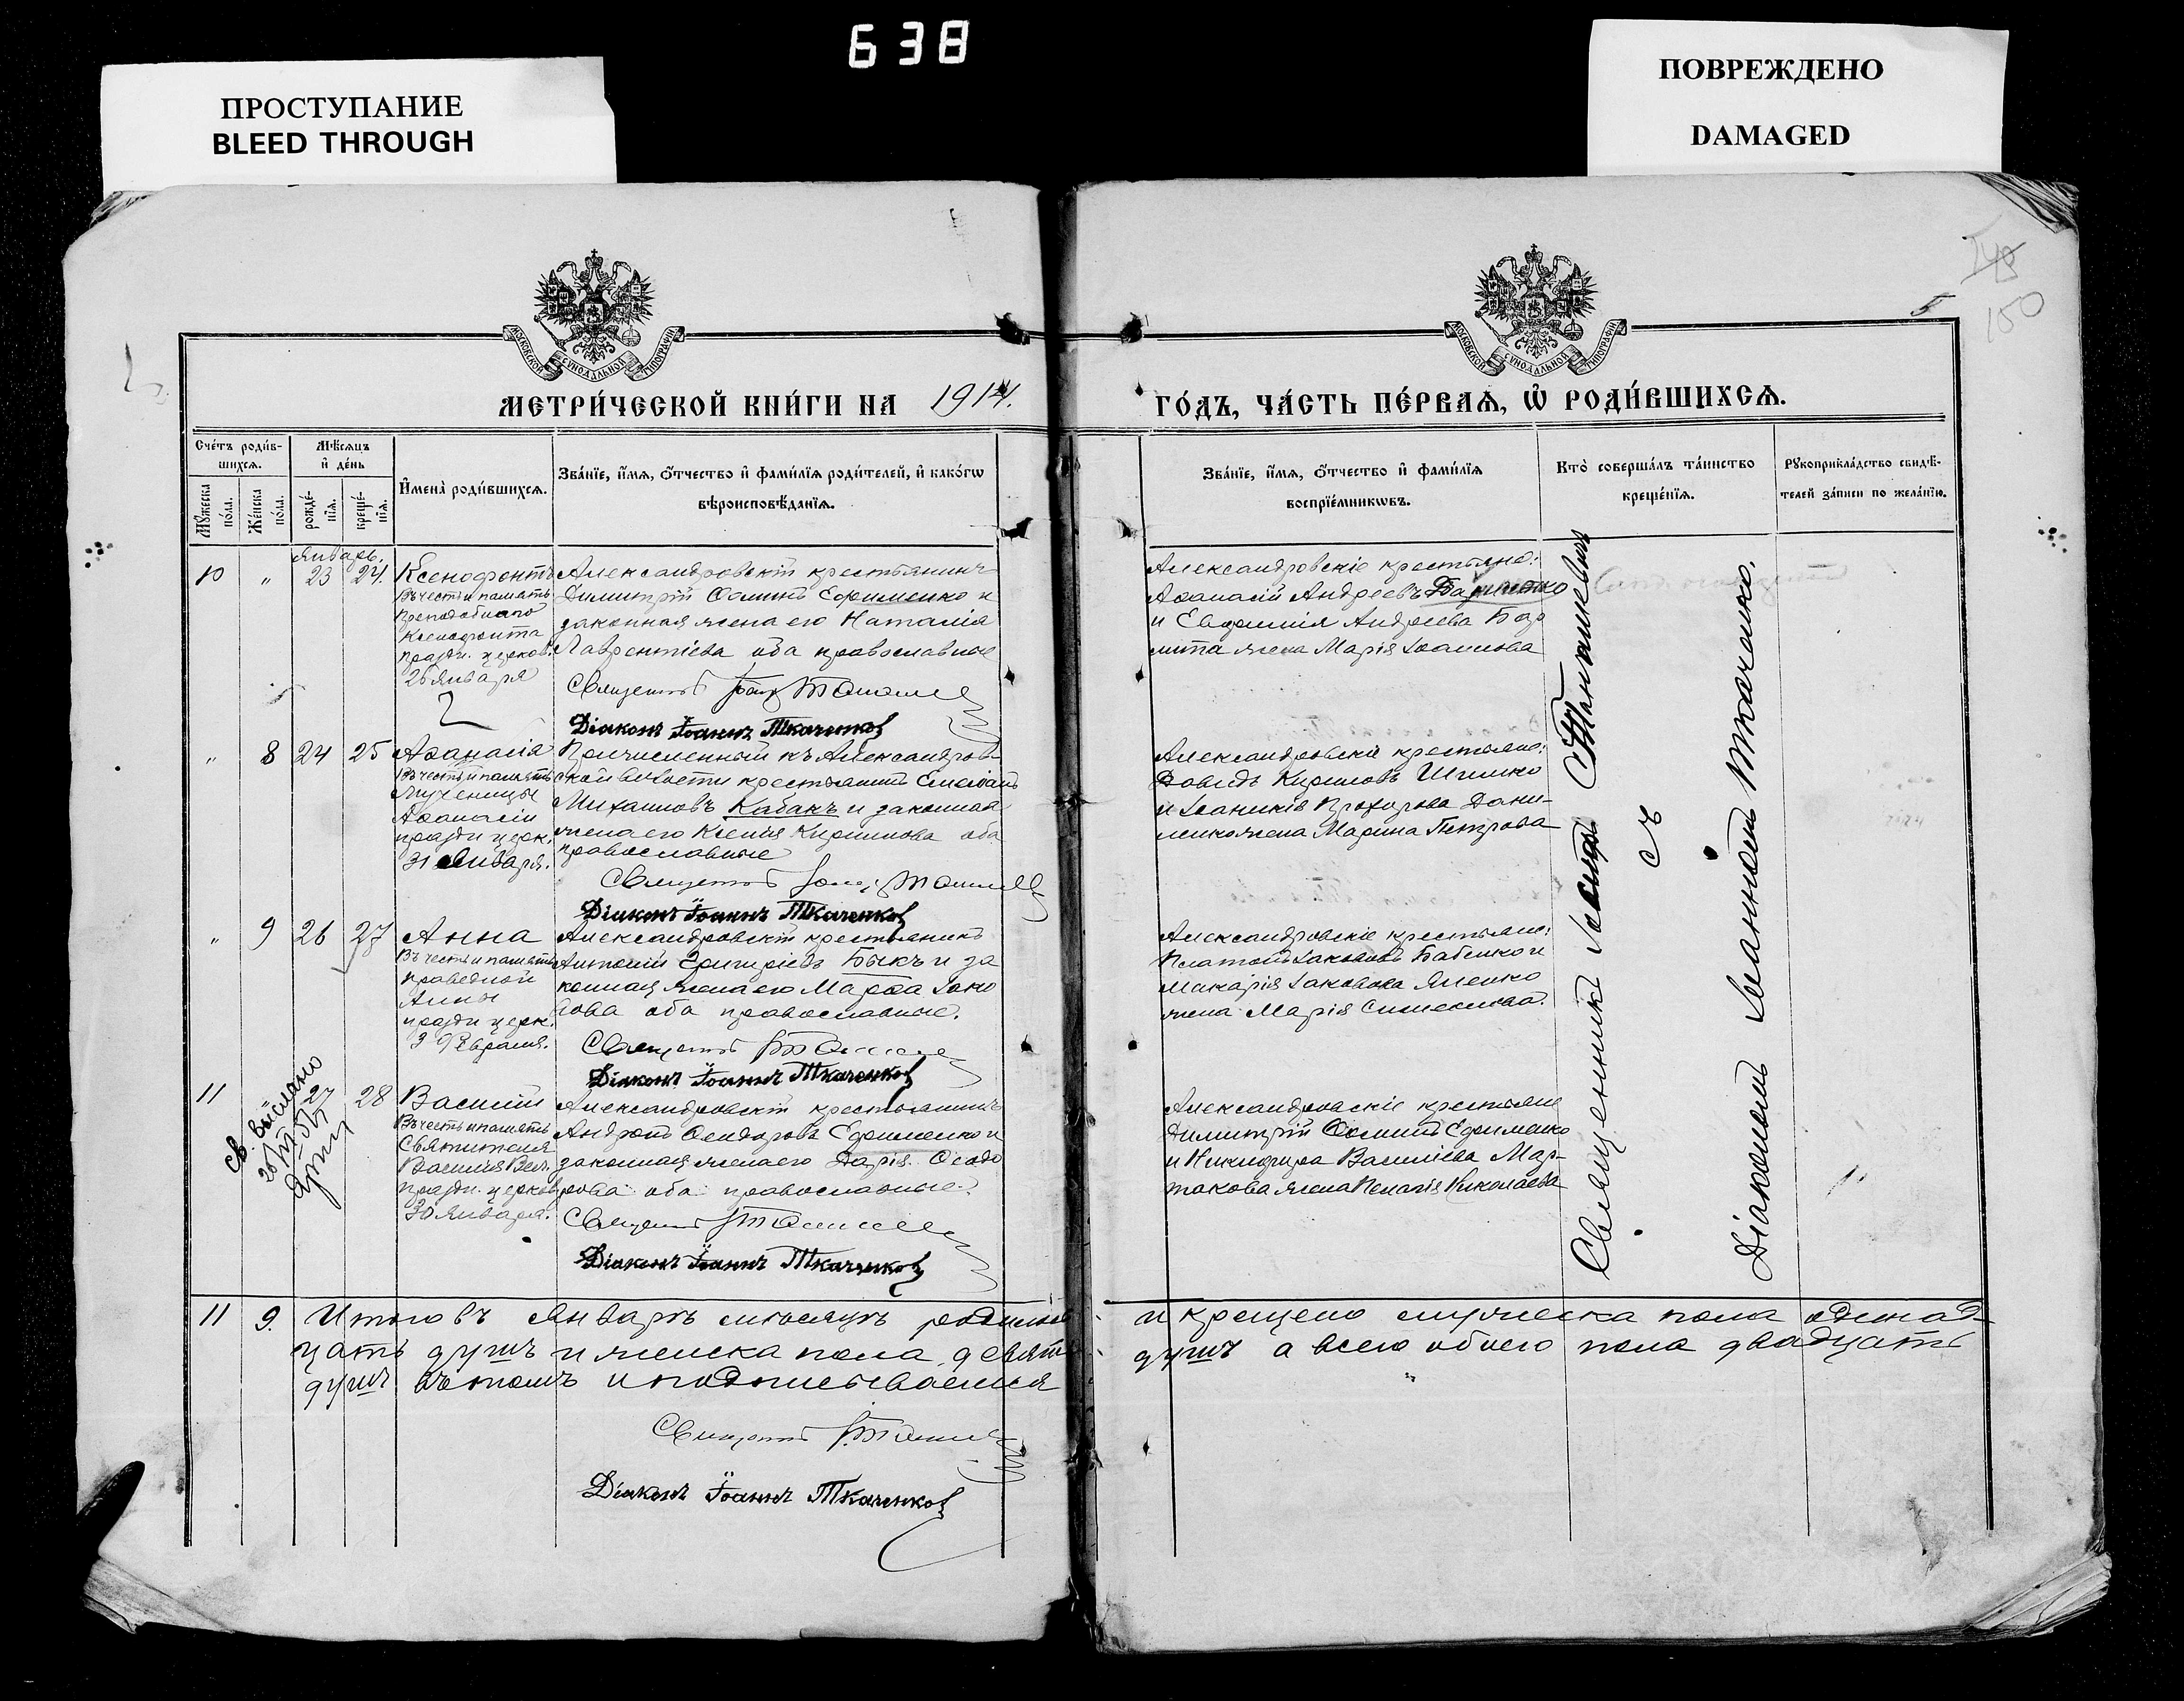 638
ПРОСТУПАНИЕ
BLEED THROUGH
ПОВРЕЖДЕНО
DAMAGED
148
150
5
МОСКОВСКОЙ СѴНОДАЛЬНОЙ ТИПОГРАФІИ
МОСКОВСКОЙ СѴНОДАЛЬНОЙ ТИПОГРАФІИ
МЕТРИ́ЧЕСКОЙ КНИ́ГИ НА 1914.
ГО́ДЪ, ЧА́СТЬ ПЕ́РВАѦ, Ѡ҆ РОДИ́ВШИХСѦ.
Сче́тъ роди́в-
шихсѧ.
Мѣ́сѧцъ
и҆ де́нь
Мꙋ́жеска
по́ла.
Же́нска
по́ла.
рожде́-
нїѧ.
креще́-
нїѧ.
И҆мена̀ роди́вшихсѧ.
Зва́нїе, и҆́мѧ, ѻ҆́тчество и҆ фами́лїѧ роди́телей, и҆ како́гѡ
вѣроисповѣ́данїѧ.
Зва́нїе, и҆́мѧ, ѻ҆́тчество и҆ фами́лїѧ
воспрїе́мникѡвъ.
Кто̀ соверша́лъ та́инство
креще́нїѧ.
Рꙋкоприкла́дство свидѣ́-
телей за́писи по жела́нїю.
Январь.
10 " 23 24. Ксенофонтъ
Въ честь и память
Преподобнаго
Ксенофонта
праздн. церков.
26 января
Александровскій крестьянинъ
Димитрій Ѳоминъ Ефименко и
законная жена его Наталія
Лаврентіева оба православные
Священникъ
Діаконъ Іоаннъ Ткаченко
Александровскіе крестьяне:
Аѳанасій Андреевъ
и Евфимія Андреева
жена Марія Іоаннова
" 8 24 25 Аѳанасія
Въ честь и память
Мученицы
Аѳанасіи
праздн церк.
31 Января.
Причисленный къ Александров-
ской волости крестьянинъ
Михаиловъ Кабакъ и законная
жена его Ксенія Кириллова оба
православные
Священникъ
Діаконъ Іоаннъ Ткаченко
Александровскіе крестьяне:
Давидъ Кириловъ Шишко
и Іоаникія Прохорова Дани-
ленко жена Марина Петрова
" 9 26 27 Анна
Въ честь и память
праведной
Анны
праздн церк.
3 Февраля.
Александровскій крестьянинъ
Антоній Григоріевъ Быкъ и за
конная жена его Марѳа Іако
вова оба православные.
Священникъ
Діаконъ Іоаннъ Ткаченко
Александровскіе крестьяне:
Платонъ Іаковлевъ Бабенко и
Макарія Іаковова
жена Марія Симеонова.
11 " 27 28 Василій
Въ честь и память
Святителя
Василія Вел.
праздн. церков
30 января.
св. выслано
Александровскій крестьянинъ
Андрей Ѳеодоровъ Ефименко и
законная жена его Дарія Ѳеодо
рова оба православные.
Священникъ
Діаконъ Іоаннъ Ткаченко
Александровскіе крестьяне
Димитрій Ѳоминъ Ефименко
и Никифора Василіева Мар-
такова жена Пелагія Николаева
Священникъ Іоаннъ
съ
Діакономъ Іоанномъ Ткаченко.
11 9. Итого въ Январѣ мѣсяцѣ родилось и крещено мужеска пола одинад-
цать душъ и женска пола девять душъ а всего обоего пола двадцать
душъ въ томъ и подписываемся
Священникъ
Діаконъ Іоаннъ Ткаченко